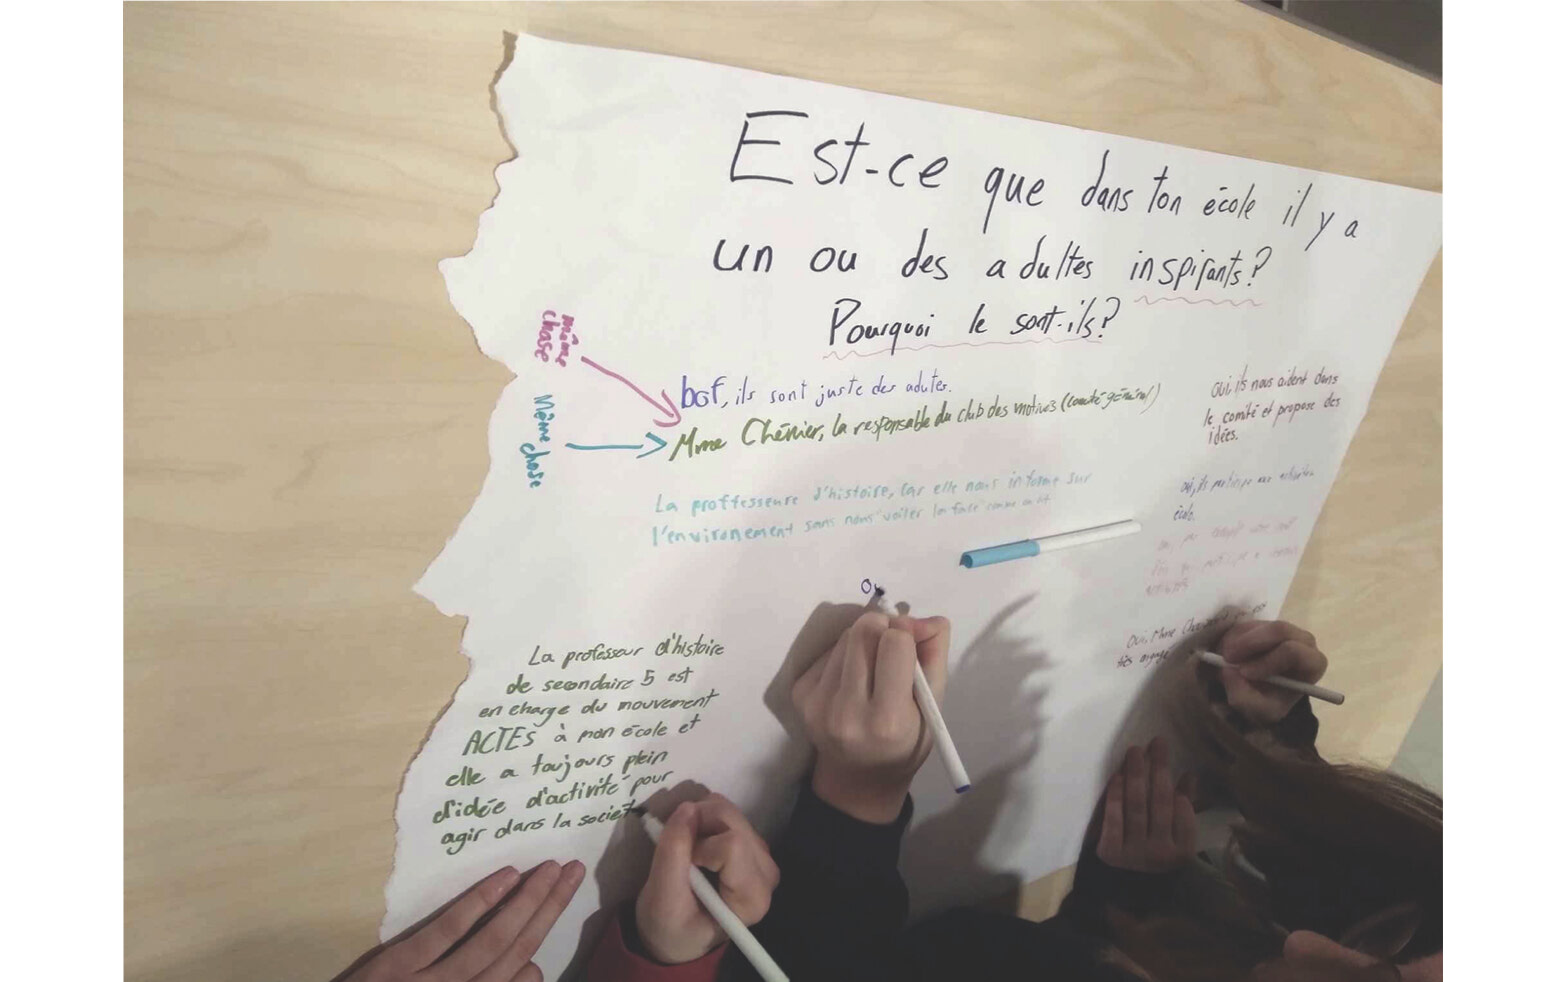 Est-ce que dans ton école il y a
un ou des adultes inspirants?
Pourquoi le sont-ils?
même
chose
bof, ils sont juste des adutes.
Même chose
Mme Chénier, la responsable du club des motivés (comité général)
La proffesseure d'histoire, car elle nous informe sur
l'environement sans nous "voiler la face" comme on dit
La professeur d'histoire
de secondaire 5 est
en charge du mouvement
ACTES à mon école et
elle a toujours plein
d'idée d'activité pour
agir dans la societ
oui ils nous aident dans
le comité et propose des
idées.
oui, ils participe aux activités
école.
oui, par
qui participe a
oui, Mme
très